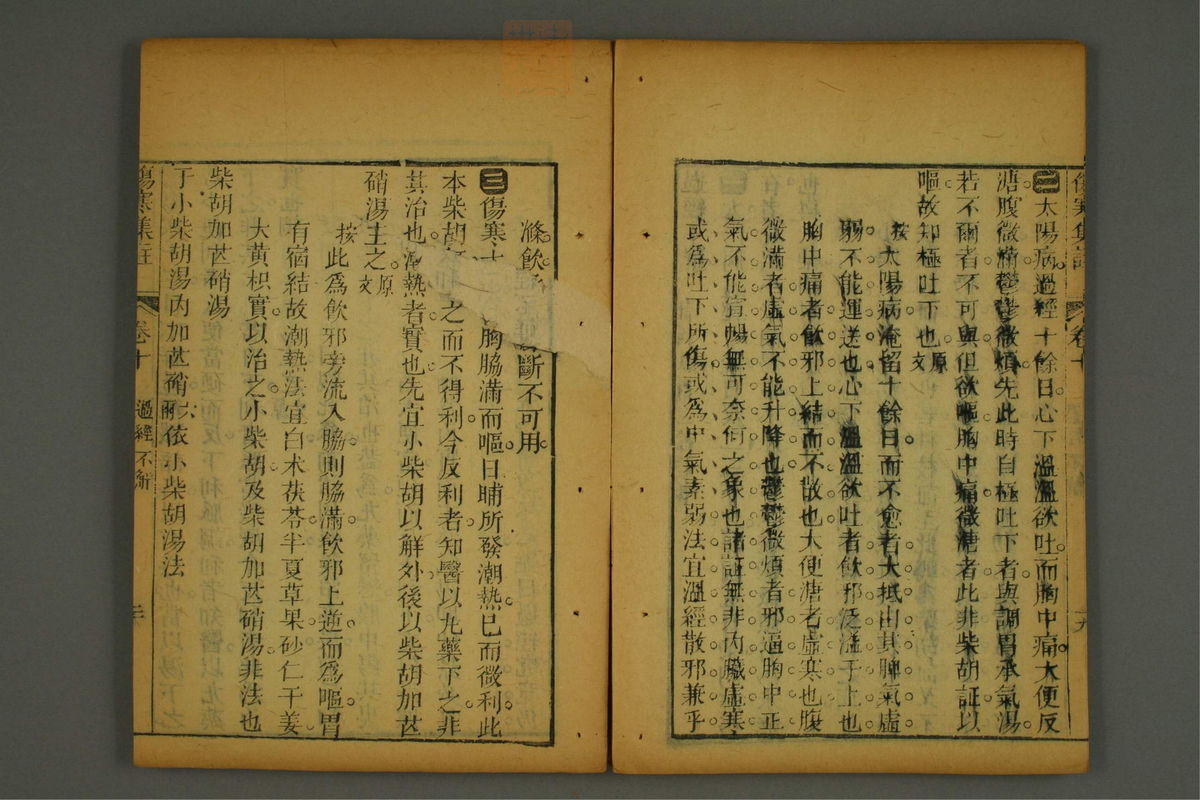 二太陽病過經十餘日心下溫溫欲吐而胸中痛大便反
溏腹微滿鬱鬱微煩先此時自極吐下者與調胃承氣湯
若不爾者不可與但欲嘔胸中痛微溏者此非柴胡証以
嘔故知極吐下也原文
按太陽病淹留十餘日而不愈者大抵由其脾氣虛
弱不能運送也心下溫溫欲吐者飲邪泛溢于上也
胸中痛者飲邪上結而不散也大便溏者虛寒也腹
微滿者虛氣不能升降也鬱鬱微煩者邪逼胸中正
氣不能宣暢無可奈何之象也諸証無非內臟虛寒
或爲吐下所傷或爲中氣素弱法宜溫經散邪兼乎
滌飲 斷不可用
三傷寒十 胸脇滿而嘔日晡所發潮熱已而微利此
本柴胡 之而不得利今反利者知醫以丸藥下之非
其治也潮熱者實也先宜小柴胡以解外後以柴胡加芒
硝湯主之原文
按此爲飲邪旁流入脇則脇滿飲邪上逆而爲嘔胃
有宿結故潮熱法宜白术茯苓半夏草果砂仁干姜
大黃枳實以治之小柴胡及柴胡加芒硝湯非法也
柴胡加芒硝湯
于小柴胡湯內加芒硝六兩依小柴胡湯法
傷寒集註 卷十 過經不解